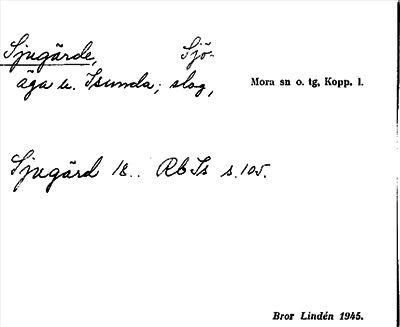 Sjugärde, Sjö-
äga u. Isunda; slog, Mora sn o. tg, Kopp. l.
Sjugärd 18.. RbIs s.105.
Bror Lindén 1945.